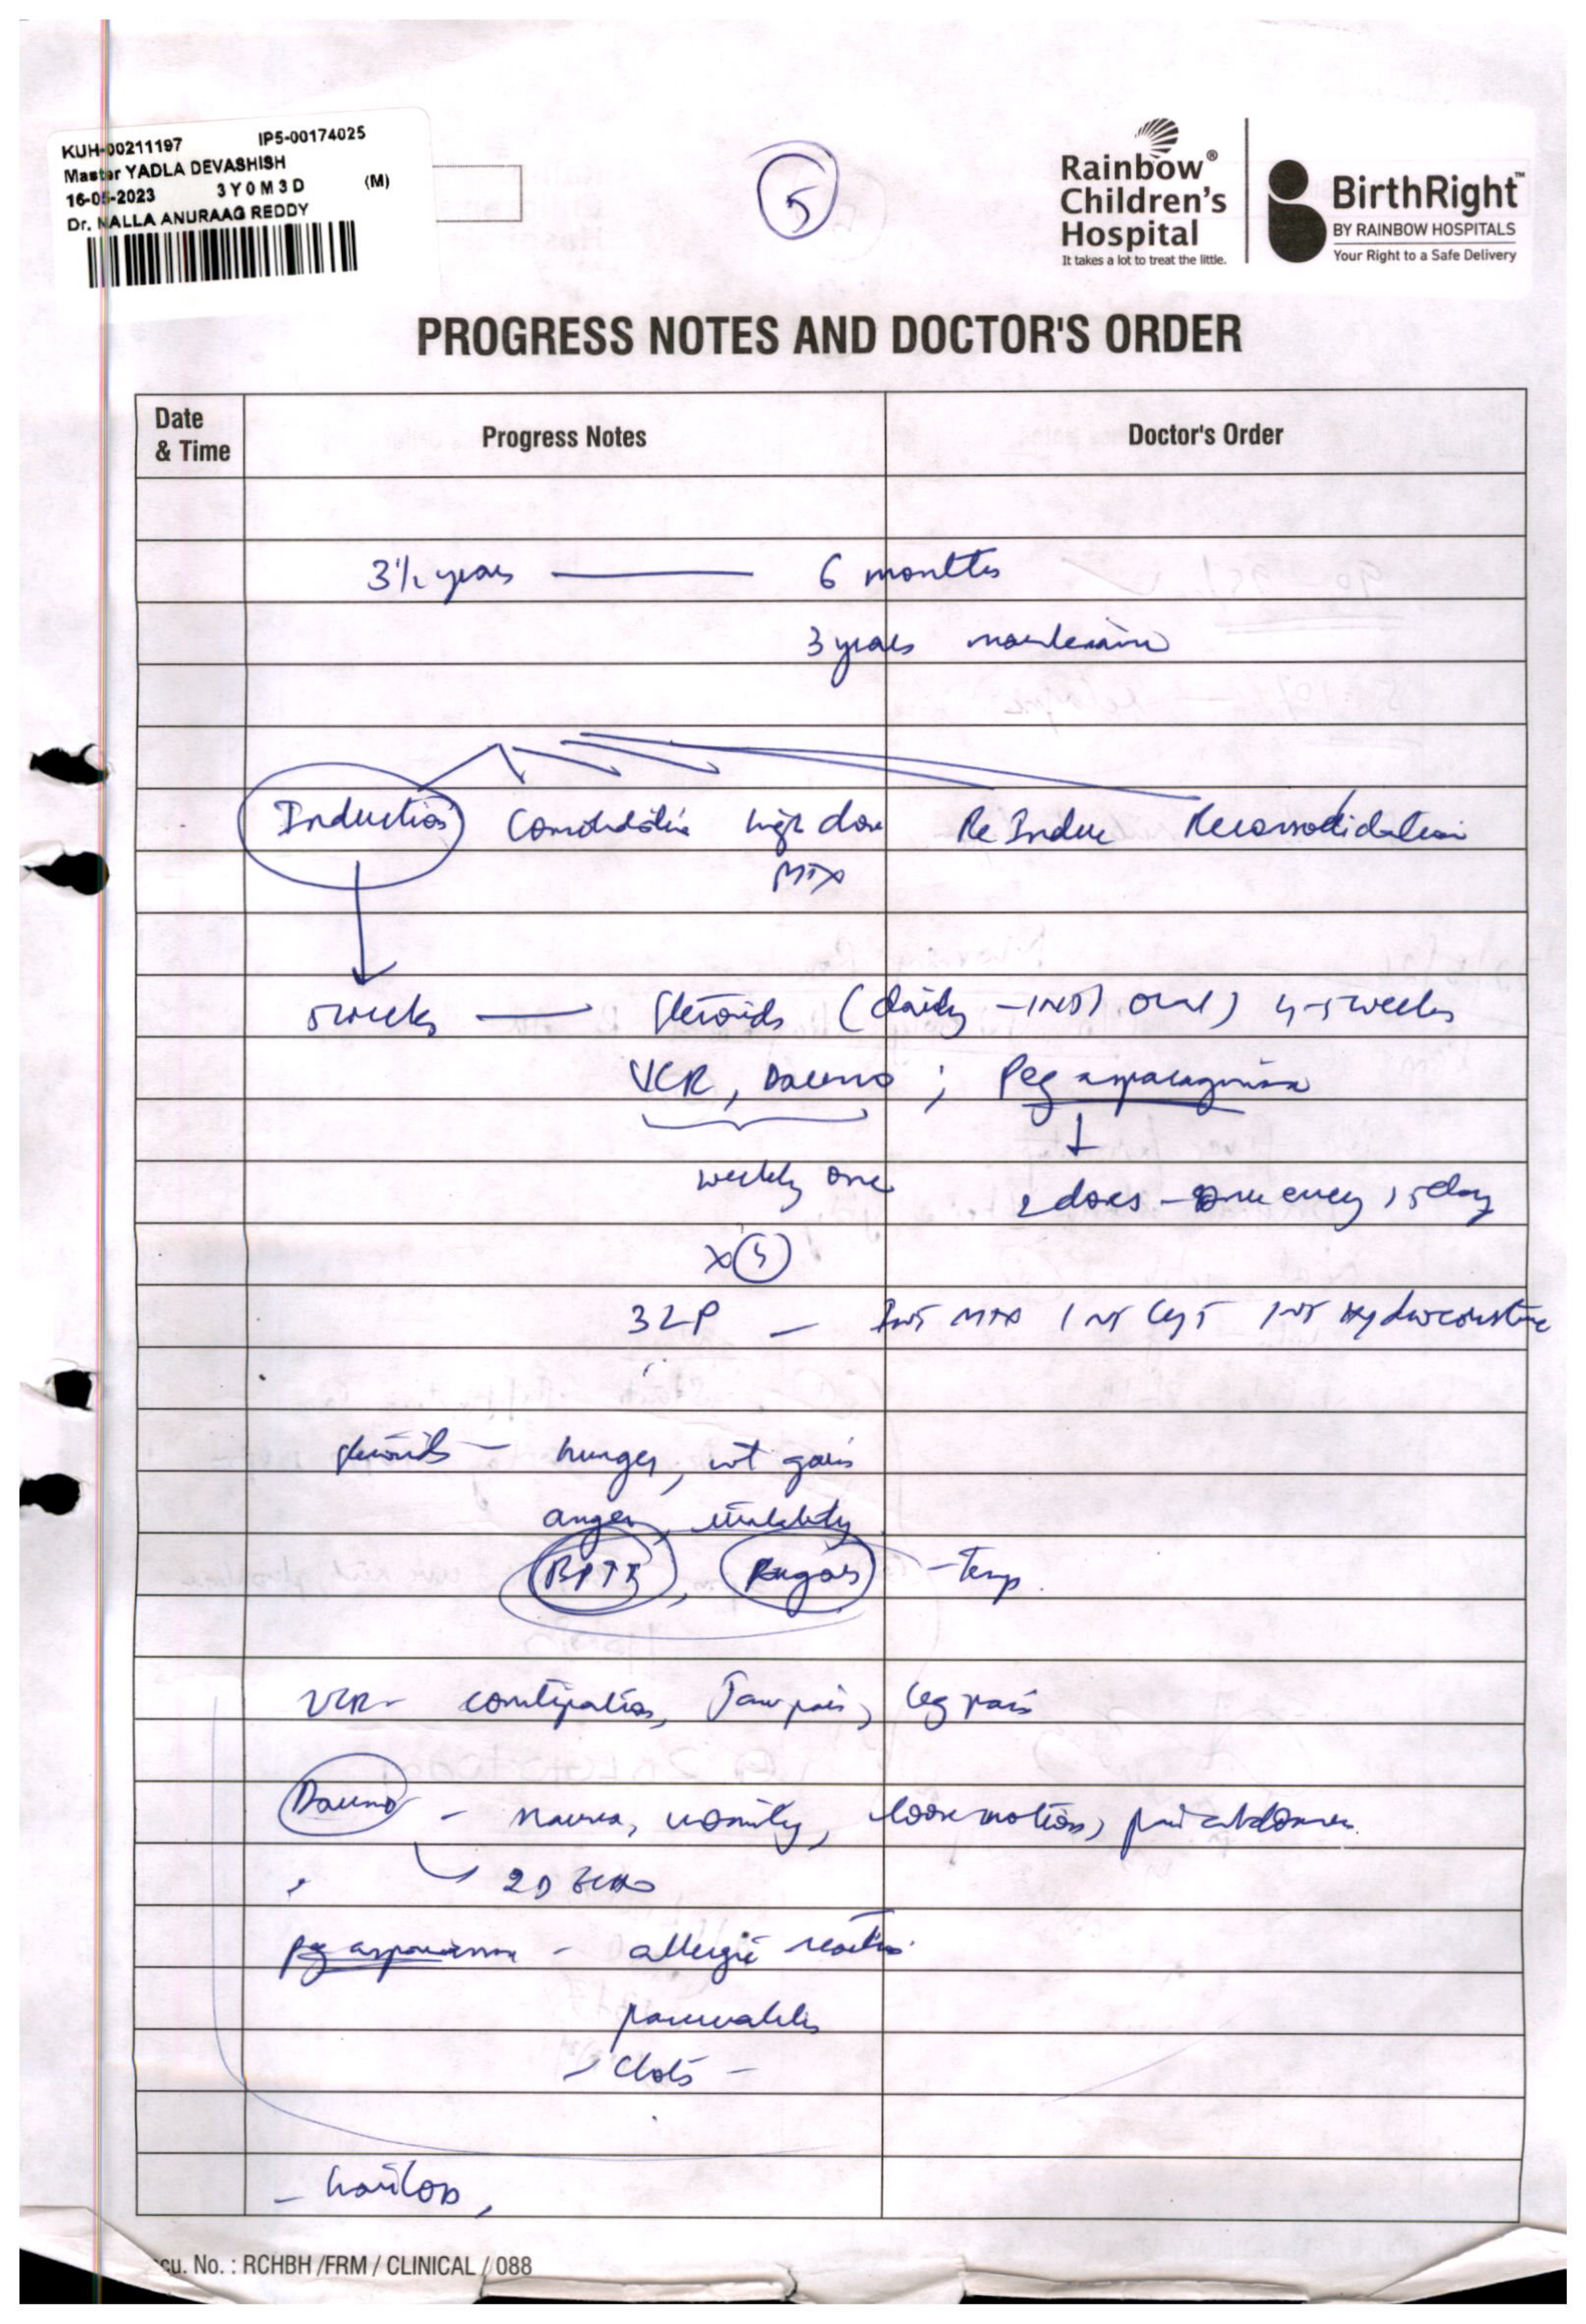 KUH-00211197 IP5-00174025
Master YADLA DEVASHISH
16-05-2023 3Y0M3D (M)
Dr. NALLA ANURAAG REDDY
5
Rainbow®
Children's
Hospital
It takes a lot to treat the little.
BirthRight™
BY RAINBOW HOSPITALS
Your Right to a Safe Delivery
PROGRESS NOTES AND DOCTOR'S ORDER
Date & Time Progress Notes Doctor's Order
3½ years — 6 months
3 years
Induction Consolidation high dose Re Induc Reconsolidation
MTX
5 weeks — Steroids (daily - oral) 4-5 weeks
VCR, Dauno ; Peg asparaginase
↓
weekly one 2 doses - one every 15 day
x
3 LP — Int MTX Int Hydrocortisone
steroids — hunger, wt gain
anger, irritability
sugars - Temp.
VCR - constipation, Jaw pain, leg pain
Dauno - nausea, vomity, loose motion, pain abdomen
2D Echo
- allergic reaction
pancreatitis
- clots -
- hairloss,
cu. No. : RCHBH /FRM / CLINICAL / 088